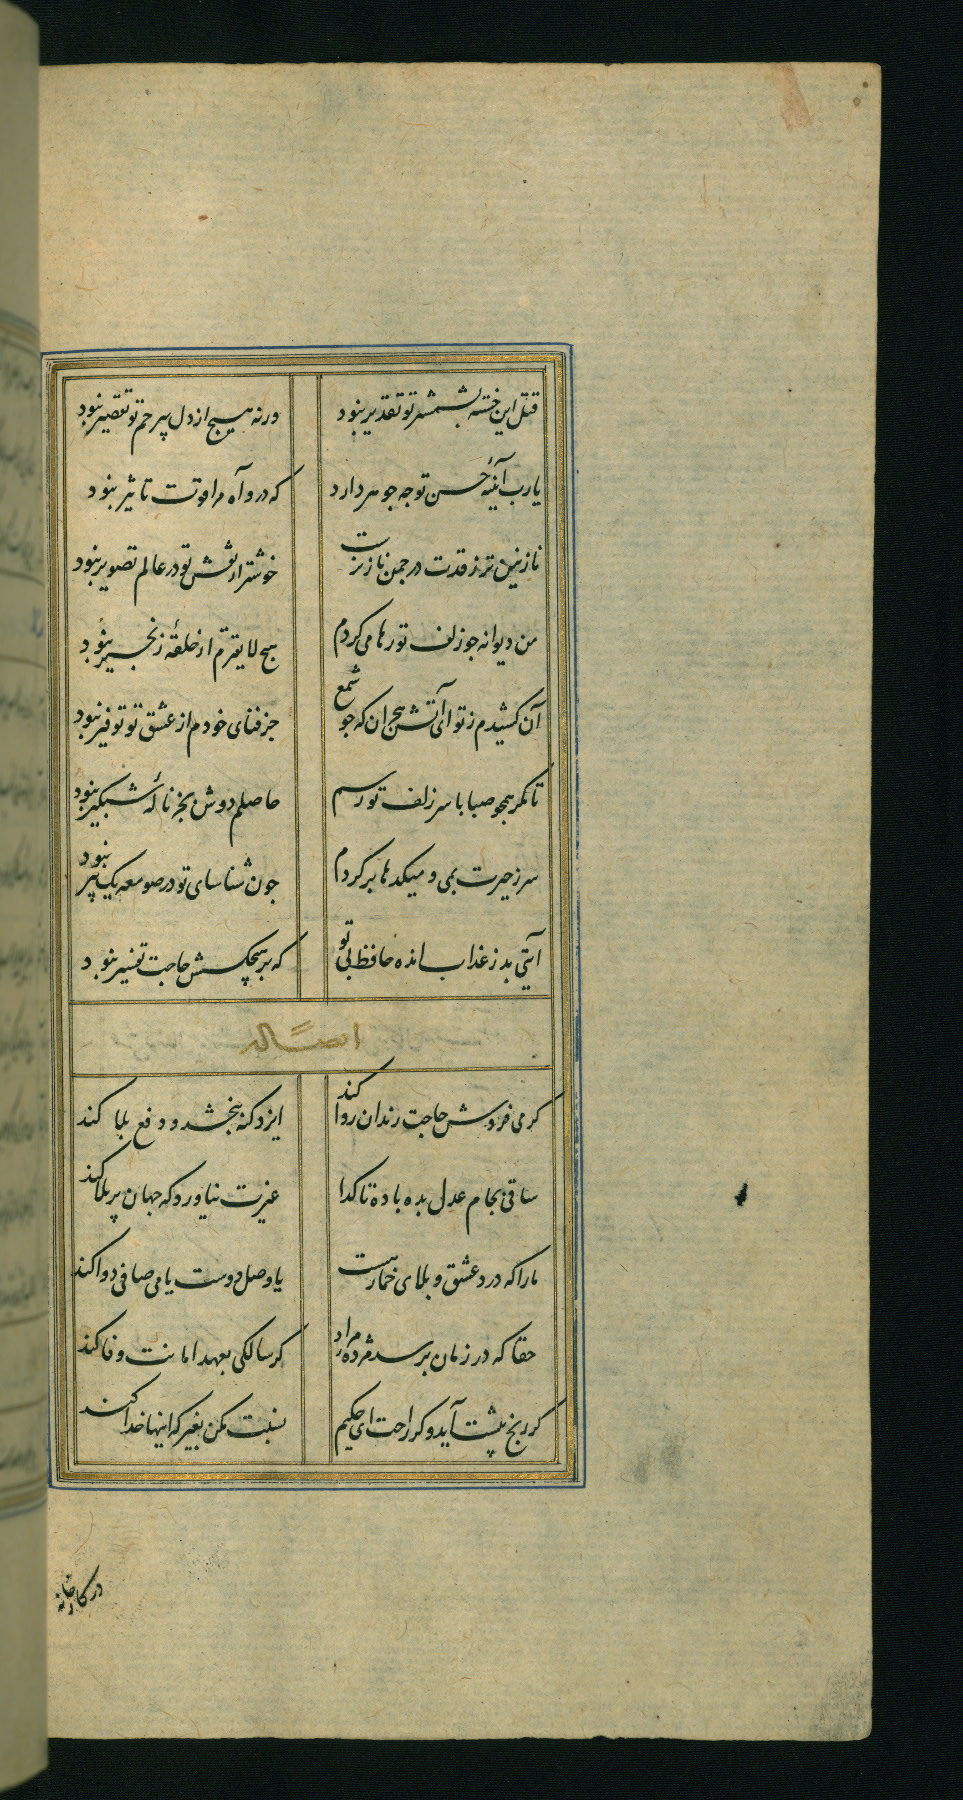 قتل این خسته بشمشیر تو تقدیر نبود
ورنه هیچ از دل بیرحم تو تقصیر نبود
یارب آئینه حسن تو چه جوهر دارد
که درو آه مرا قوت تاثیر نبود
نازنین تر ز قدت در چمن ناز نرست
خوشتر از نقش تو در عالم تصویر نبود
من دیوانه چو زلف تو رها می کردم
هیچ لایقترم از حلقه زنجیر نبود
آن کشیدم ز تو ای آتش هجران که چو شمع
جز فنای خودم از عشق تو توفیر نبود
تا مگر همچو صبا با سر زلف تو رسم
حاصلم دوش بجز ناله شبگیر نبود
سر ز حیرت بمی و میکدها بر کردم
چون شناسای تو در صومعه یک پیر نبود
آیتی بد ز عذاب انده حافظ بی تو
که بر هیچکسش حاجت تفسیر نبود
ایضاً له
کر می فروش حاجت رندان روا کند
ایزد کنه ببخشد و دفع بلا کند
ساقی بجام عدل بده باده تا کدا
غیرت نیاورد که جهان پر بلا کند
مارا که درد عشق و بلای خمار هست
یا وصل دوست یا می صافی دوا کند
حقا که در زمان برسد مژده مراد
کر سالکی بعهد امانت وفا کند
کر رنج پیشت آید و کر راحت ای حکیم
نسبت مکن بغیر که اینها خدا کند
در کارخانه